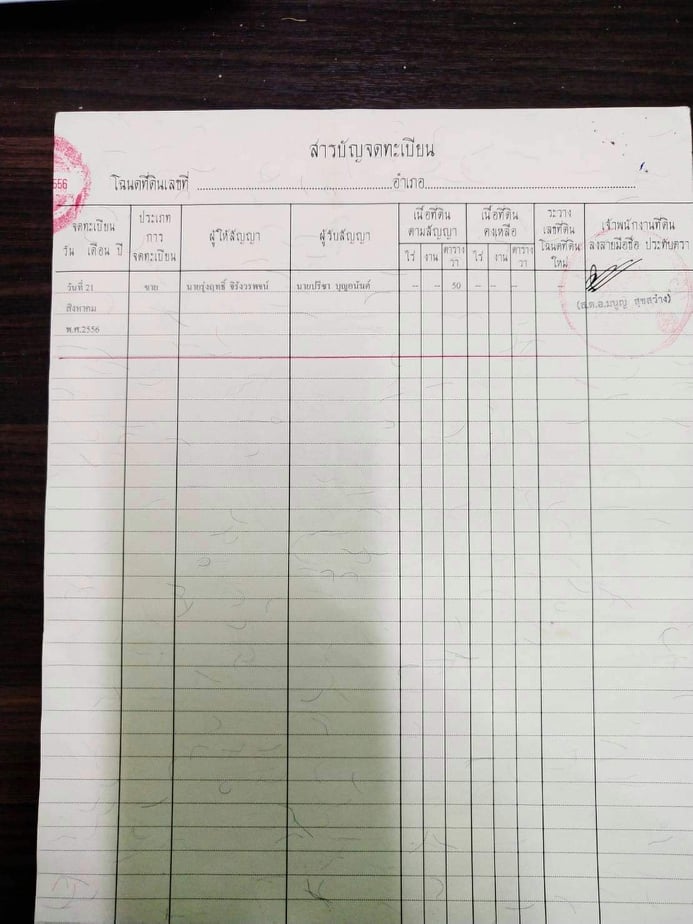 สารบัญจดทะเบียน
โฉนดที่ดินเลขที่ ........ อำเภอ........
556
จดทะเบียน
วัน เดือน ปี
ประเภท
การ
จดทะเบียน
ผู้ให้สัญญา
ผู้รับสัญญา
เนื้อที่ดิน
ตามสัญญา
ไร่ งาน ตาราง
วา
เนื้อที่ดิน
คงเหลือ
ไร่ งาน ตาราง
วา
ระวาง
เลขที่ดิน
โฉนดที่ดิน
ใหม่
เจ้าพนักงานที่ดิน
ลงลายมือชื่อ ประทับตรา
วันที่ 21 ขาย นายรุ่งฤทธิ์ นายปรีชา บุญอนันต์ -- -- 50 -- -- --
สิงหาคม
พ.ศ.2556
สุขสว่าง)